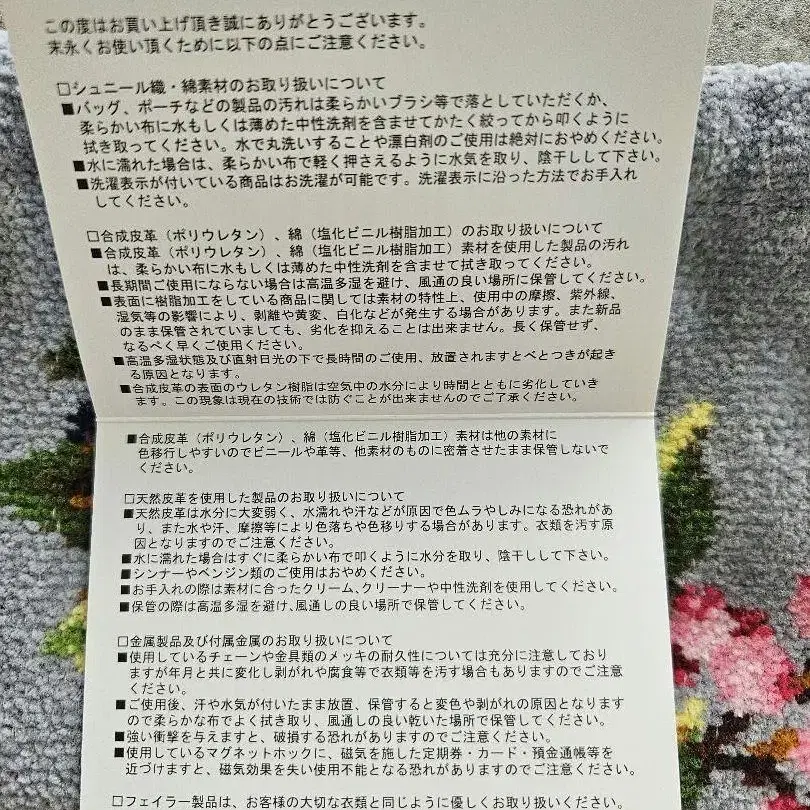 この度はお買い上げ頂き誠にありがとうございます。
末永くお使い頂くために以下の点にご注意ください。
□シュニール織・綿素材のお取り扱いについて
■バッグ、ポーチなどの製品の汚れは柔らかいブラシ等で落としていただくか、
柔らかい布に水もしくは薄めた中性洗剤を含ませてかたく絞ってから叩くように
拭き取ってください。水で丸洗いすることや漂白剤のご使用は絶対におやめください。
■水に濡れた場合は、柔らかい布で軽く押さえるように水気を取り、陰干しして下さい。
■洗濯表示が付いている商品はお洗濯が可能です。洗濯表示に沿った方法でお手入れ
してください。
□合成皮革（ポリウレタン）、綿（塩化ビニル樹脂加工）のお取り扱いについて
■合成皮革（ポリウレタン）、綿（塩化ビニル樹脂加工）素材を使用した製品の汚れ
は、柔らかい布に水もしくは薄めた中性洗剤を含ませて拭き取ってください。
■長期間ご使用にならない場合は高温多湿を避け、風通の良い場所に保管してください。
■表面に樹脂加工をしている商品に関しては素材の特性上、使用中の摩擦、紫外線、
湿気等の影響により、剥離や黄変、白化などが発生する場合があります。また新品
のまま保管されていましても、劣化を抑えることは出来ません。長く保管せず、
なるべく早くご使用ください。
■高温多湿状態及び直射日光の下で長時間のご使用、放置されますとべとつきが起き
る原因となります。
■合成皮革の表面のウレタン樹脂は空気中の水分により時間とともに劣化していき
ます。この現象は現在の技術では防ぐことが出来ませんのでご了承ください。
■合成皮革（ポリウレタン）、綿（塩化ビニル樹脂加工）素材は他の素材に
色移行しやすいのでビニールや革等、他素材のものに密着させたまま保管しないで
ください。
□天然皮革を使用した製品のお取り扱いについて
■天然皮革は水分に大変弱く、水濡れや汗などが原因で色ムラやしみになる恐れがあ
り、また水や汗、摩擦等により色落ちや色移りする場合があります。衣類を汚す原
因となりますのでご注意ください。
■水に濡れた場合はすぐに柔らかい布で叩くように水分を取り、陰干しして下さい。
■シンナーやベンジン類のご使用はおやめください。
■お手入れの際は素材に合ったクリーム、クリーナーや中性洗剤を使用してください。
■保管の際は高温多湿を避け、風通しの良い場所で保管してください。
□金属製品及び付属金属のお取り扱いについて
■使用しているチェーンや金具類のメッキの耐久性については充分に注意しており
ますが年月と共に変化し剥がれや腐食等で衣類等を汚す場合もありますのでご注意
ください。
■ご使用後、汗や水気が付いたまま放置、保管すると変色や剥がれの原因となります
ので柔らかな布でよく拭き取り、風通しの良い乾いた場所で保管してください。
■強い衝撃を与えますと、破損する恐れがありますのでご注意ください。
■使用しているマグネットホックに、磁気を施した定期券・カード・預金通帳等を
近づけますと、磁気効果を失い使用不能となる恐れがありますのでご注意ください。
□フェイラー製品は、お客様の大切な衣類と同じように優しくお取り扱いください。